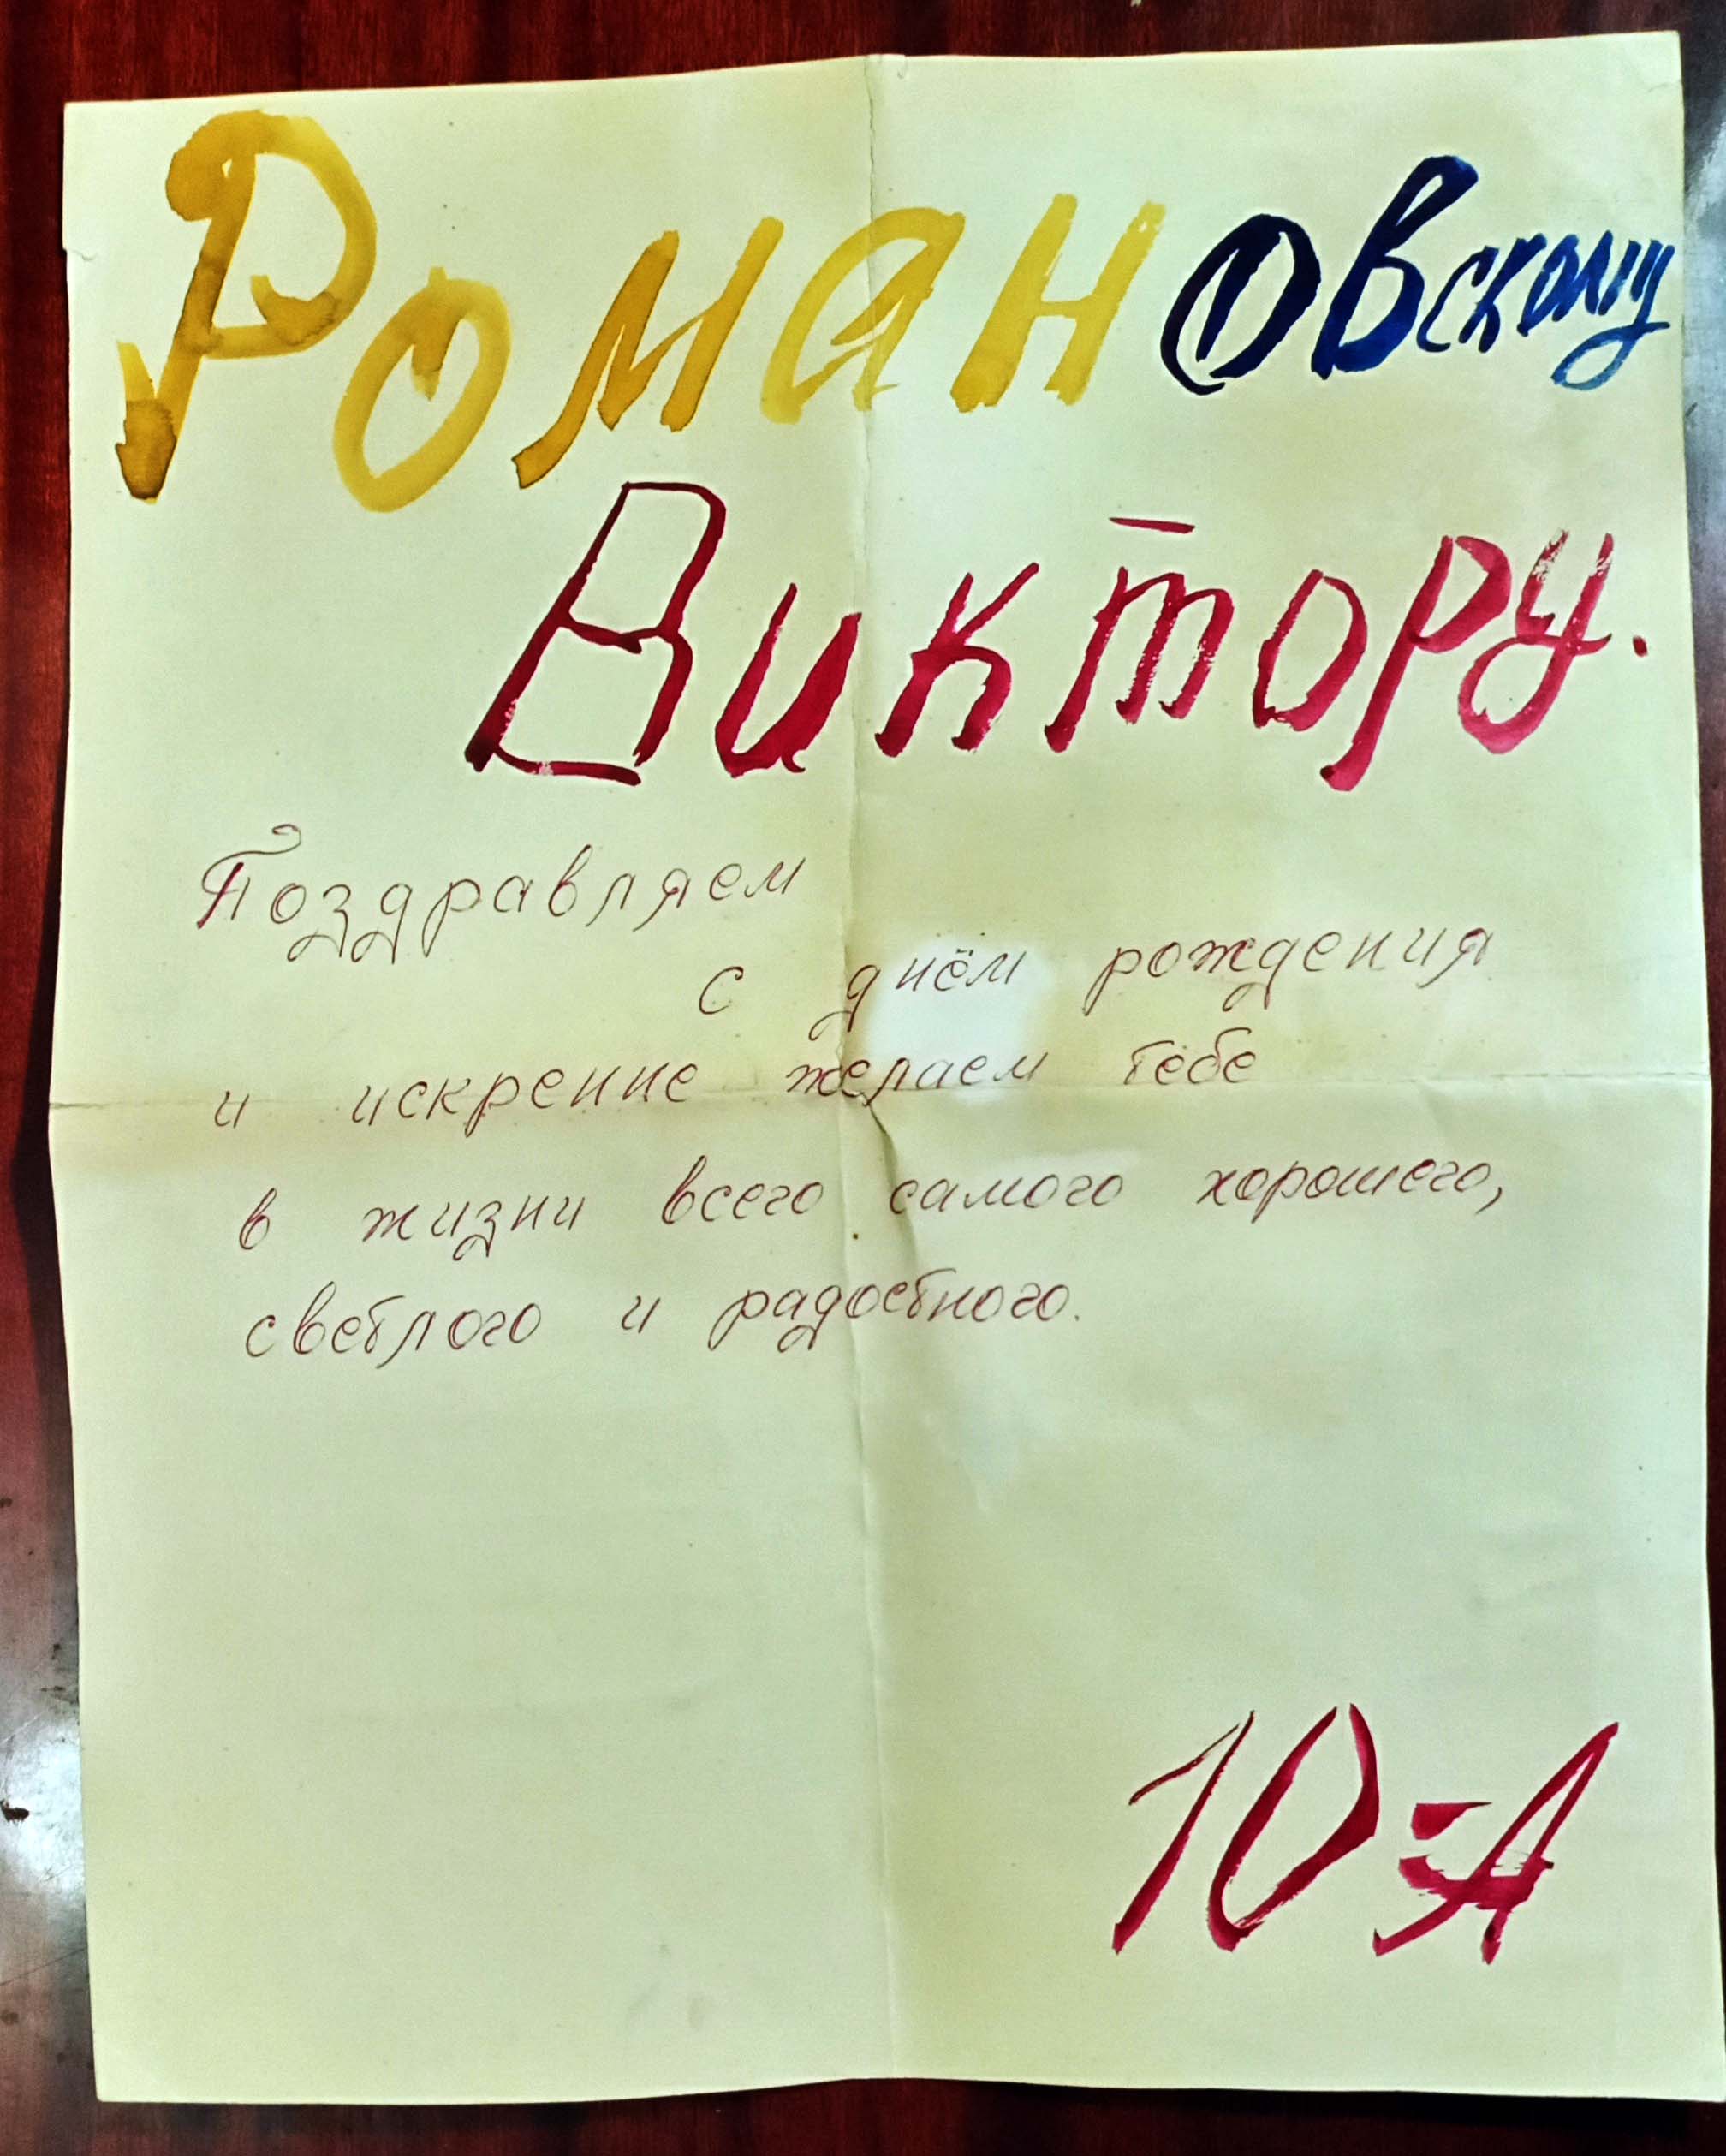 Романовскому
Виктору.
Поздравляем
с днём рождения
и искренне желаем тебе
в жизни всего самого хорошего,
светлого и радостного.
10=А